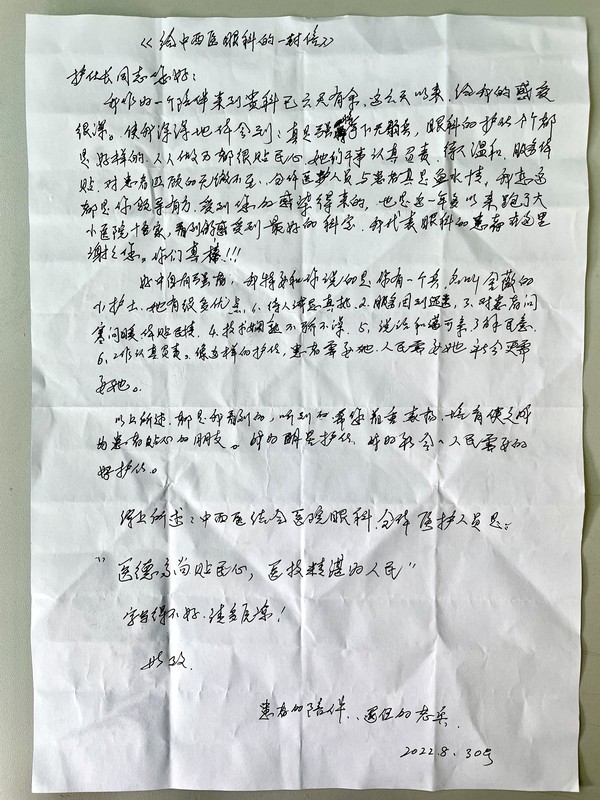 《给中西医眼科的一封信》
护仕长同志您好:
我作为一个陪伴来到贵科已六天有余,这六天以来,给我的感受
很深。使我深深地体会到:真是强将下无弱兵,眼科的护仕个个都
是好样的,人人做事都很贴民心,她们干事认真负责,待人温和,服务体
贴,对患者照顾的无微不至,全体医护人员与患者真是鱼水情,我想这
都是你领导有方,受到您的感染得来的,也是近一年多以来跑了大
小医院十多家,看到的感受到最好的科室,我代表眼科的患者在这里
谢谢您。你们真棒!!!
好中自有强者,我特要和你说的是你有一个兵,名叫全薇的
小护士,她有很多优点,1.待人诚恳真挚,2.服务周到迅速,3.对患者问
寒问暖体贴民情,4.技术娴熟不骄不躁,5.说话和蔼可亲了解民意,
6.工作认真负责。像这样的护仕,患者需要她,人民需要她,社会更需
要她。
以上所述,都是我看到的,听到的希您着重表扬,培育使之成
为患者贴心的朋友。成为眼科护仕,成为社会、人民需要的
好护仕。
综上所述:中西医结合医院眼科全体医护人员是:
"医德高尚贴民心,医技精湛为人民"
字写得不好,请多原谅!
此致
患者的陪伴、退伍的老兵
2022.8.30号